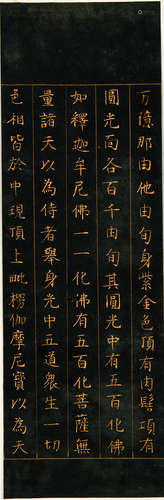 万億那由他由旬身紫金色頂有肉髻項有
圓光面各百千由旬其圓光中有五百化佛
如釋迦牟尼佛一一化佛有五百化菩薩無
量諸天以為侍者舉身光中五道衆生一切
色相皆於中現頂上毗楞伽摩尼寶以為天